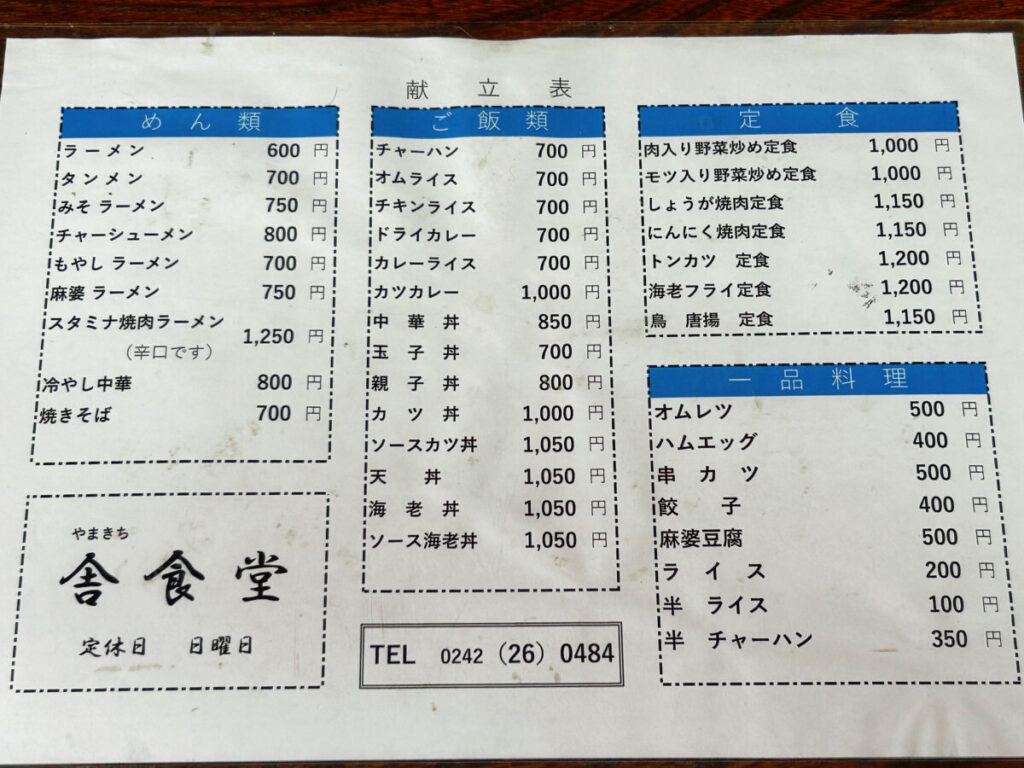 献立表
めん類
ラーメン 600 円
タンメン 700 円
みそ ラーメン 750 円
チャーシューメン 800 円
もやし ラーメン 700 円
麻婆 ラーメン 750 円
スタミナ焼肉ラーメン 1,250 円
（辛口です）
冷やし中華 800 円
焼きそば 700 円
やまきち
𠮷 食堂
定休日 日曜日
ご飯類
チャーハン 700 円
オムライス 700 円
チキンライス 700 円
ドライカレー 700 円
カレーライス 700 円
カツカレー 1,000 円
中華丼 850 円
玉子丼 700 円
親子丼 800 円
カツ丼 1,000 円
ソースカツ丼 1,050 円
天丼 1,050 円
海老丼 1,050 円
ソース海老丼 1,050 円
TEL 0242（26）0484
定食
肉入り野菜炒め定食 1,000 円
モツ入り野菜炒め定食 1,000 円
しょうが焼肉定食 1,150 円
にんにく焼肉定食 1,150 円
トンカツ 定食 1,200 円
海老フライ定食 1,200 円
鳥 唐揚 定食 1,150 円
一品料理
オムレツ 500 円
ハムエッグ 400 円
串カツ 500 円
餃子 400 円
麻婆豆腐 500 円
ライス 200 円
半 ライス 100 円
半 チャーハン 350 円